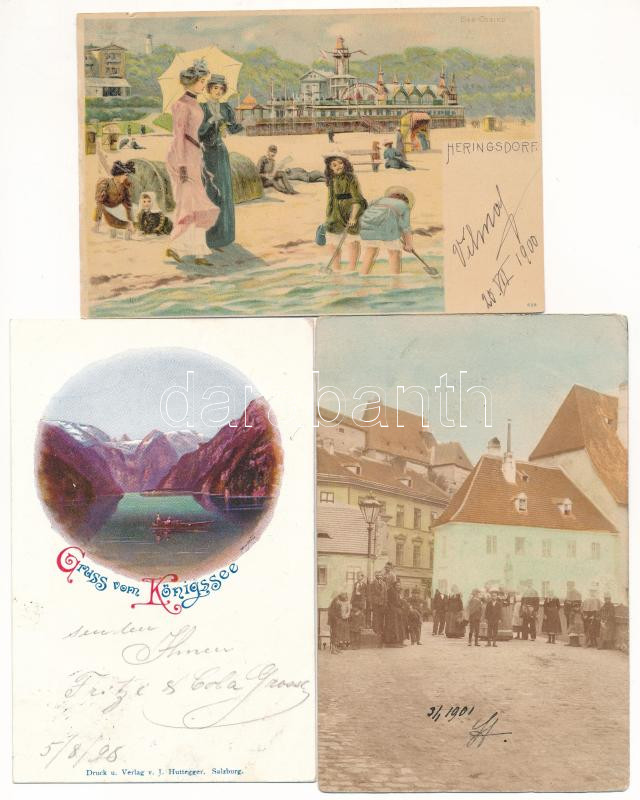 See-Casino
HERINGSDORF.
Vilmos
20 VII 1900
628
darabanth
Gruss vom Königssee
senden
Ihnen
Fritze & Cola Grosse
5/8/98
Druck u. Verlag v. J. Huttegger, Salzburg.
1901